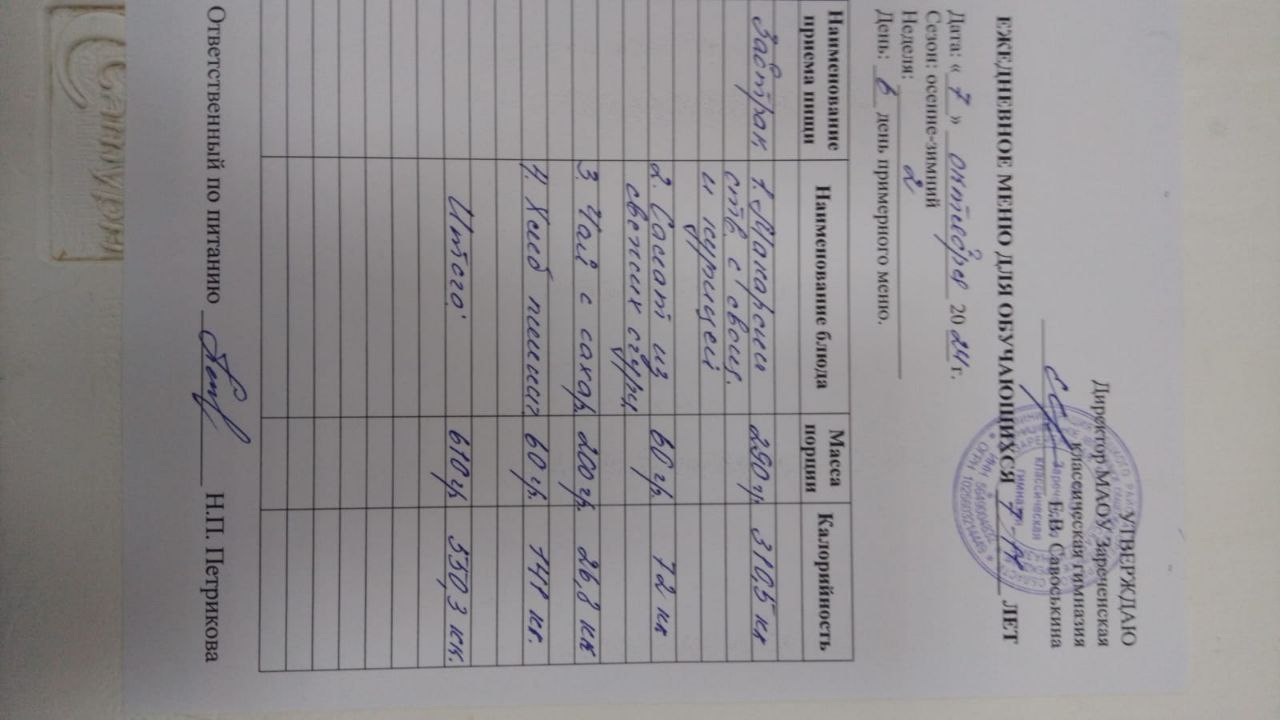 УТВЕРЖДАЮ
Директор МАОУ Зареченская
классическая гимназия
Е.В. Савоськина
ЕЖЕДНЕВНОЕ МЕНЮ ДЛЯ ОБУЧАЮЩИХСЯ 7- ЛЕТ
Дата: « 7 » октября 2024 г.
Сезон: осенне-зимний
Неделя: 2
День: 6 день примерного меню.
Наименование приема пищи Наименование блюда Масса порции Калорийность
Завтрак 1. Макароны 290 гр. 310,5 кк
отв. с овощ.
и курицей
2. Салат из 60 гр. 72 кк
свежих огурц
3. Чай с сахар. 200 гр. 26,8 кк
4. Хлеб пшенич. 60 гр. 141 кк.
Итого: 610 гр. 550,3 кк.
Ответственный по питанию Н.П. Петрикова
Сатурн